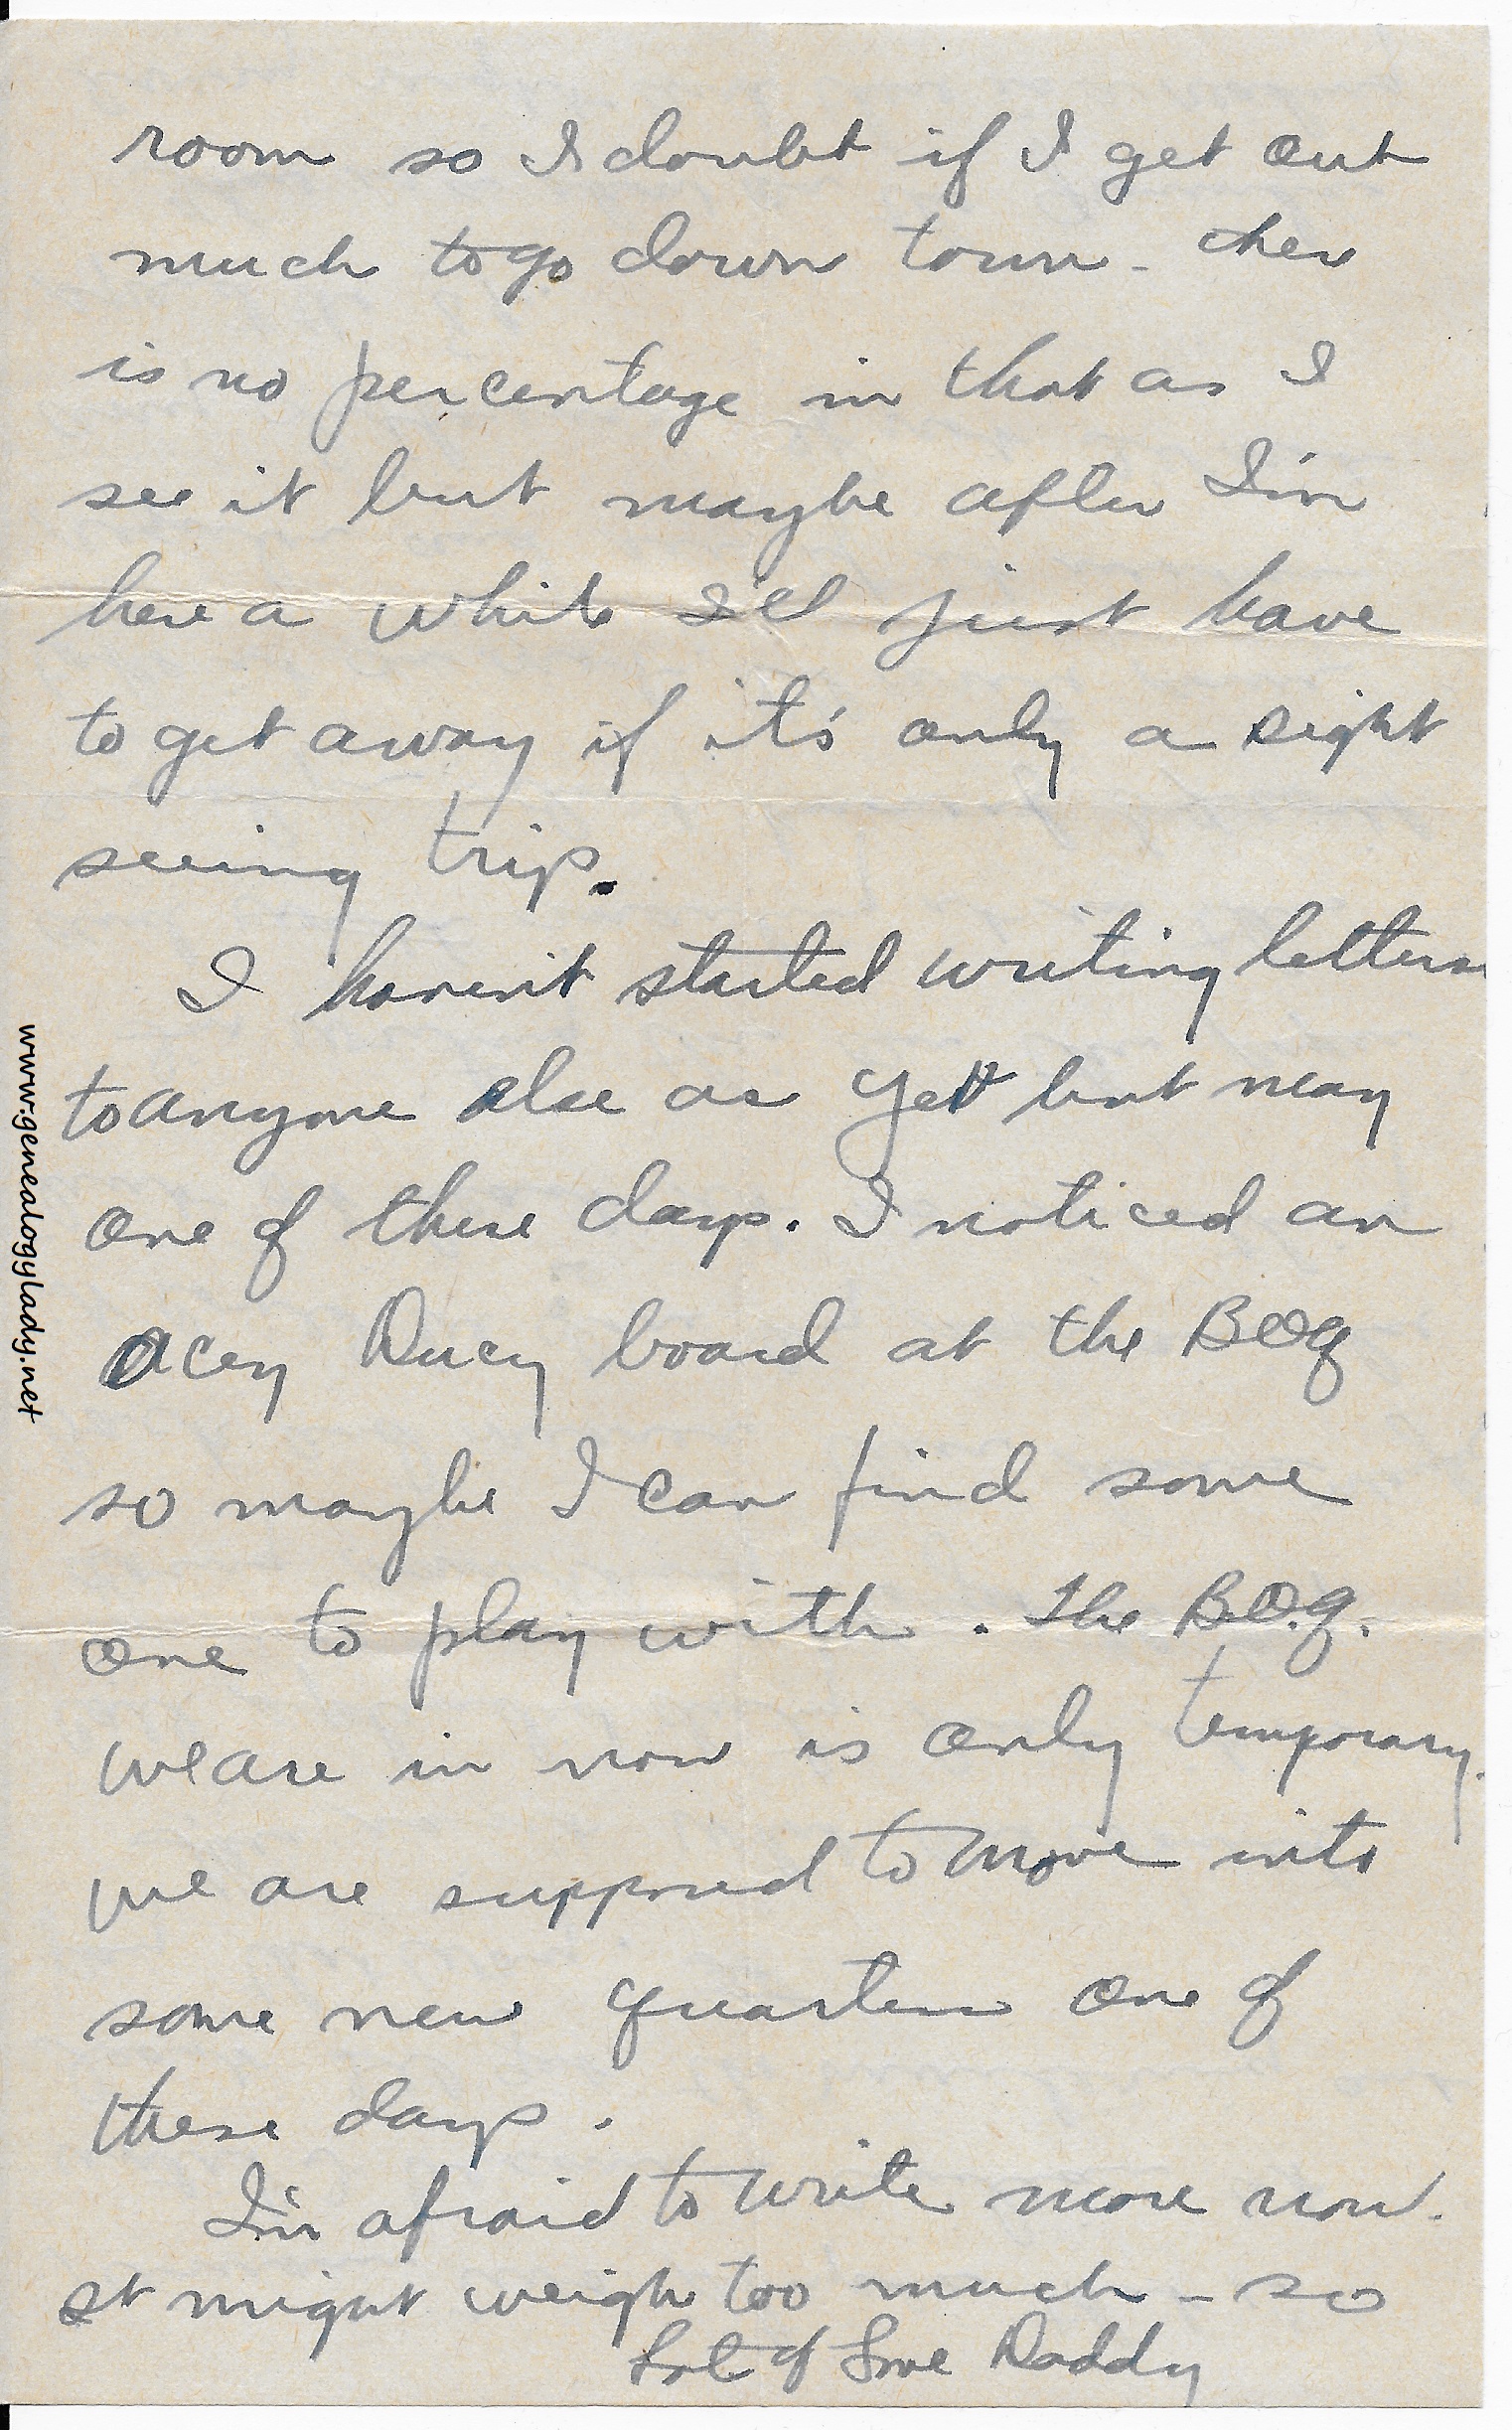 room so I doubt if I get out
much to go down town - ther
is no percentage in that as I
see it but maybe after I'm
here a while I'll just have
to get away if it's only a sight
seeing trip.
I haven't started writing letters
to anyone else as yet but may
one of these days. I noticed an
Acey Ducy board at the BOQ
so maybe I can find some
one to play with. The B.O.Q.
we are in now is only temporary.
we are supposed to move into
some new quarters one of
these days.
I'm afraid to write more now.
It might weigh too much - so
Lots of Love Daddy
www.genealogylady.net